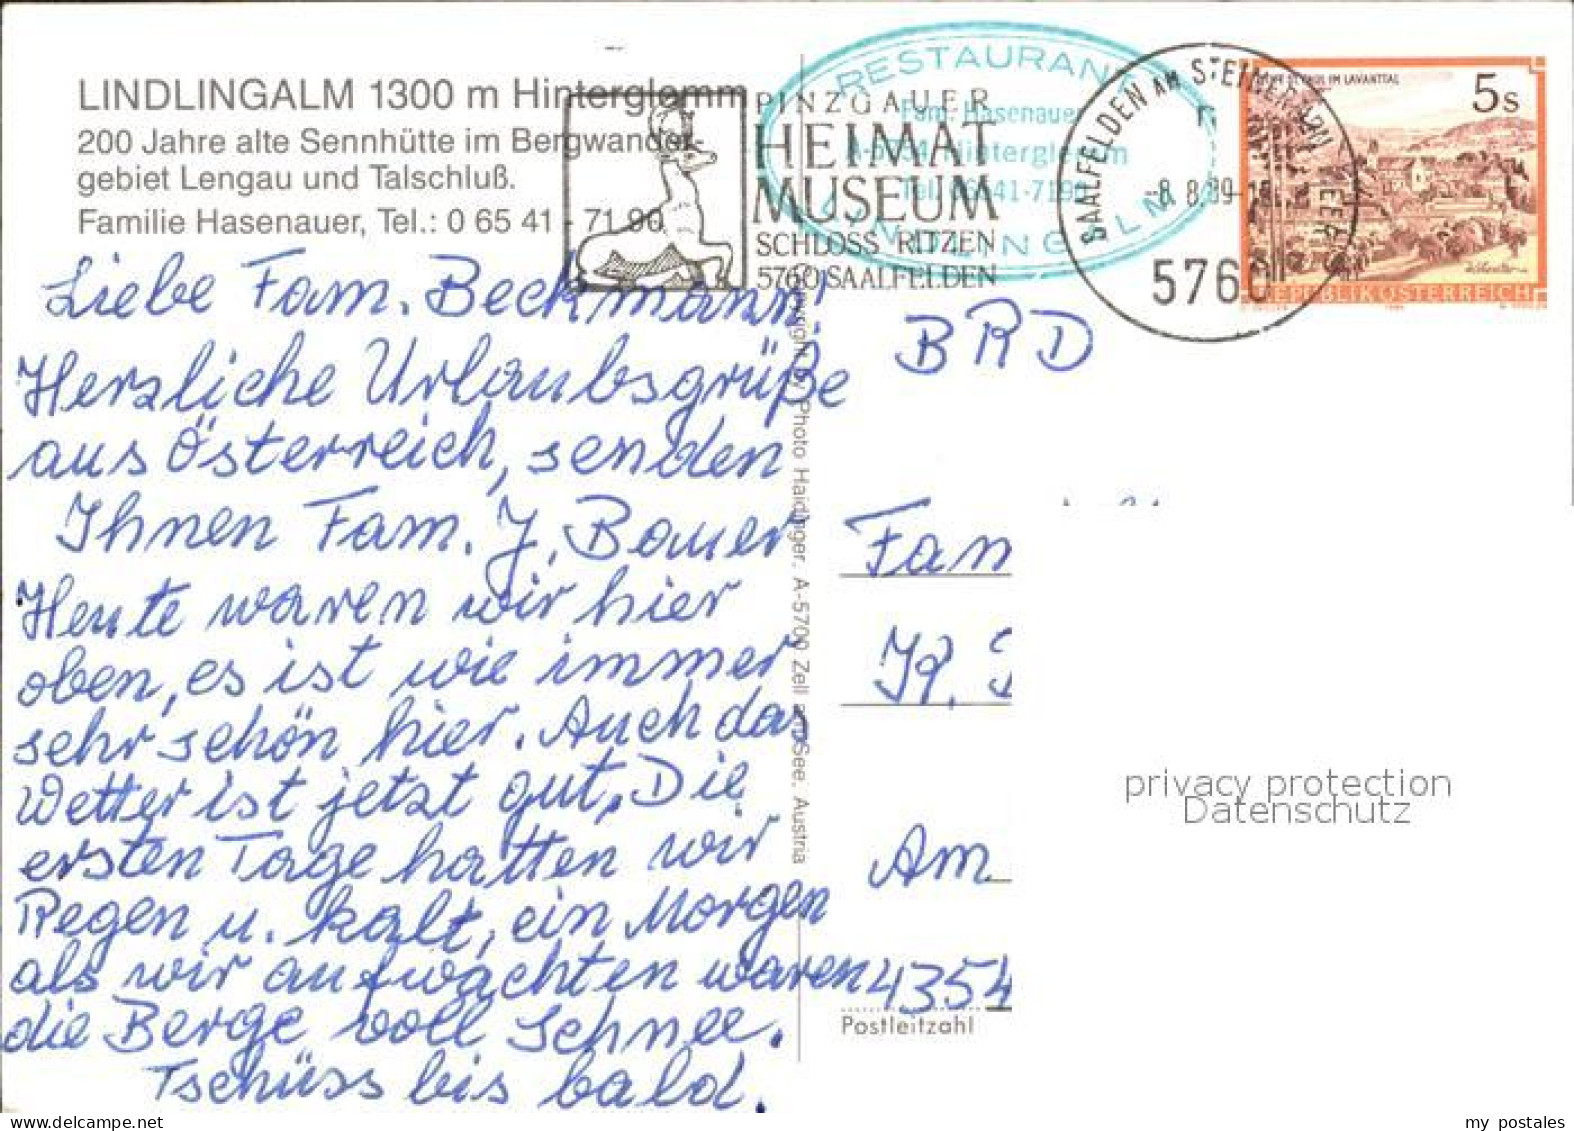 LINDLINGALM 1300 m Hinterglemm
200 Jahre alte Sennhütte im Bergwander-
gebiet Lengau und Talschluß.
Familie Hasenauer, Tel.: 0 65 41 - 71 90
PINZGAUER
HEIMAT
MUSEUM
SCHLOSS RITZEN
5760 SAALFELDEN
RESTAURANT
Fam. Hasenauer
Hinterglemm
LINDLINGALM
SAALFELDEN AM STEINERNEN MEER
-8.8.89-
5760
STIFT ST. PAUL IM LAVANTTAL
5s
REPUBLIK ÖSTERREICH
Liebe Fam. Beckmann!
Herzliche Urlaubsgrüße
aus Österreich, senden
Ihnen Fam. J. Bauer
Heute waren wir hier
oben, es ist wie immer
sehr schön hier. Auch das
Wetter ist jetzt gut. Die
ersten Tage hatten wir
Regen u. kalt, ein Morgen
als wir aufwachten waren
die Berge voll Schnee.
Tschüss bis bald.
Copyright by Photo Haidinger, A-5700 Zell am See, Austria
BRD
Fam
Am
4354
Postleitzahl
privacy protection
Datenschutz
my postales